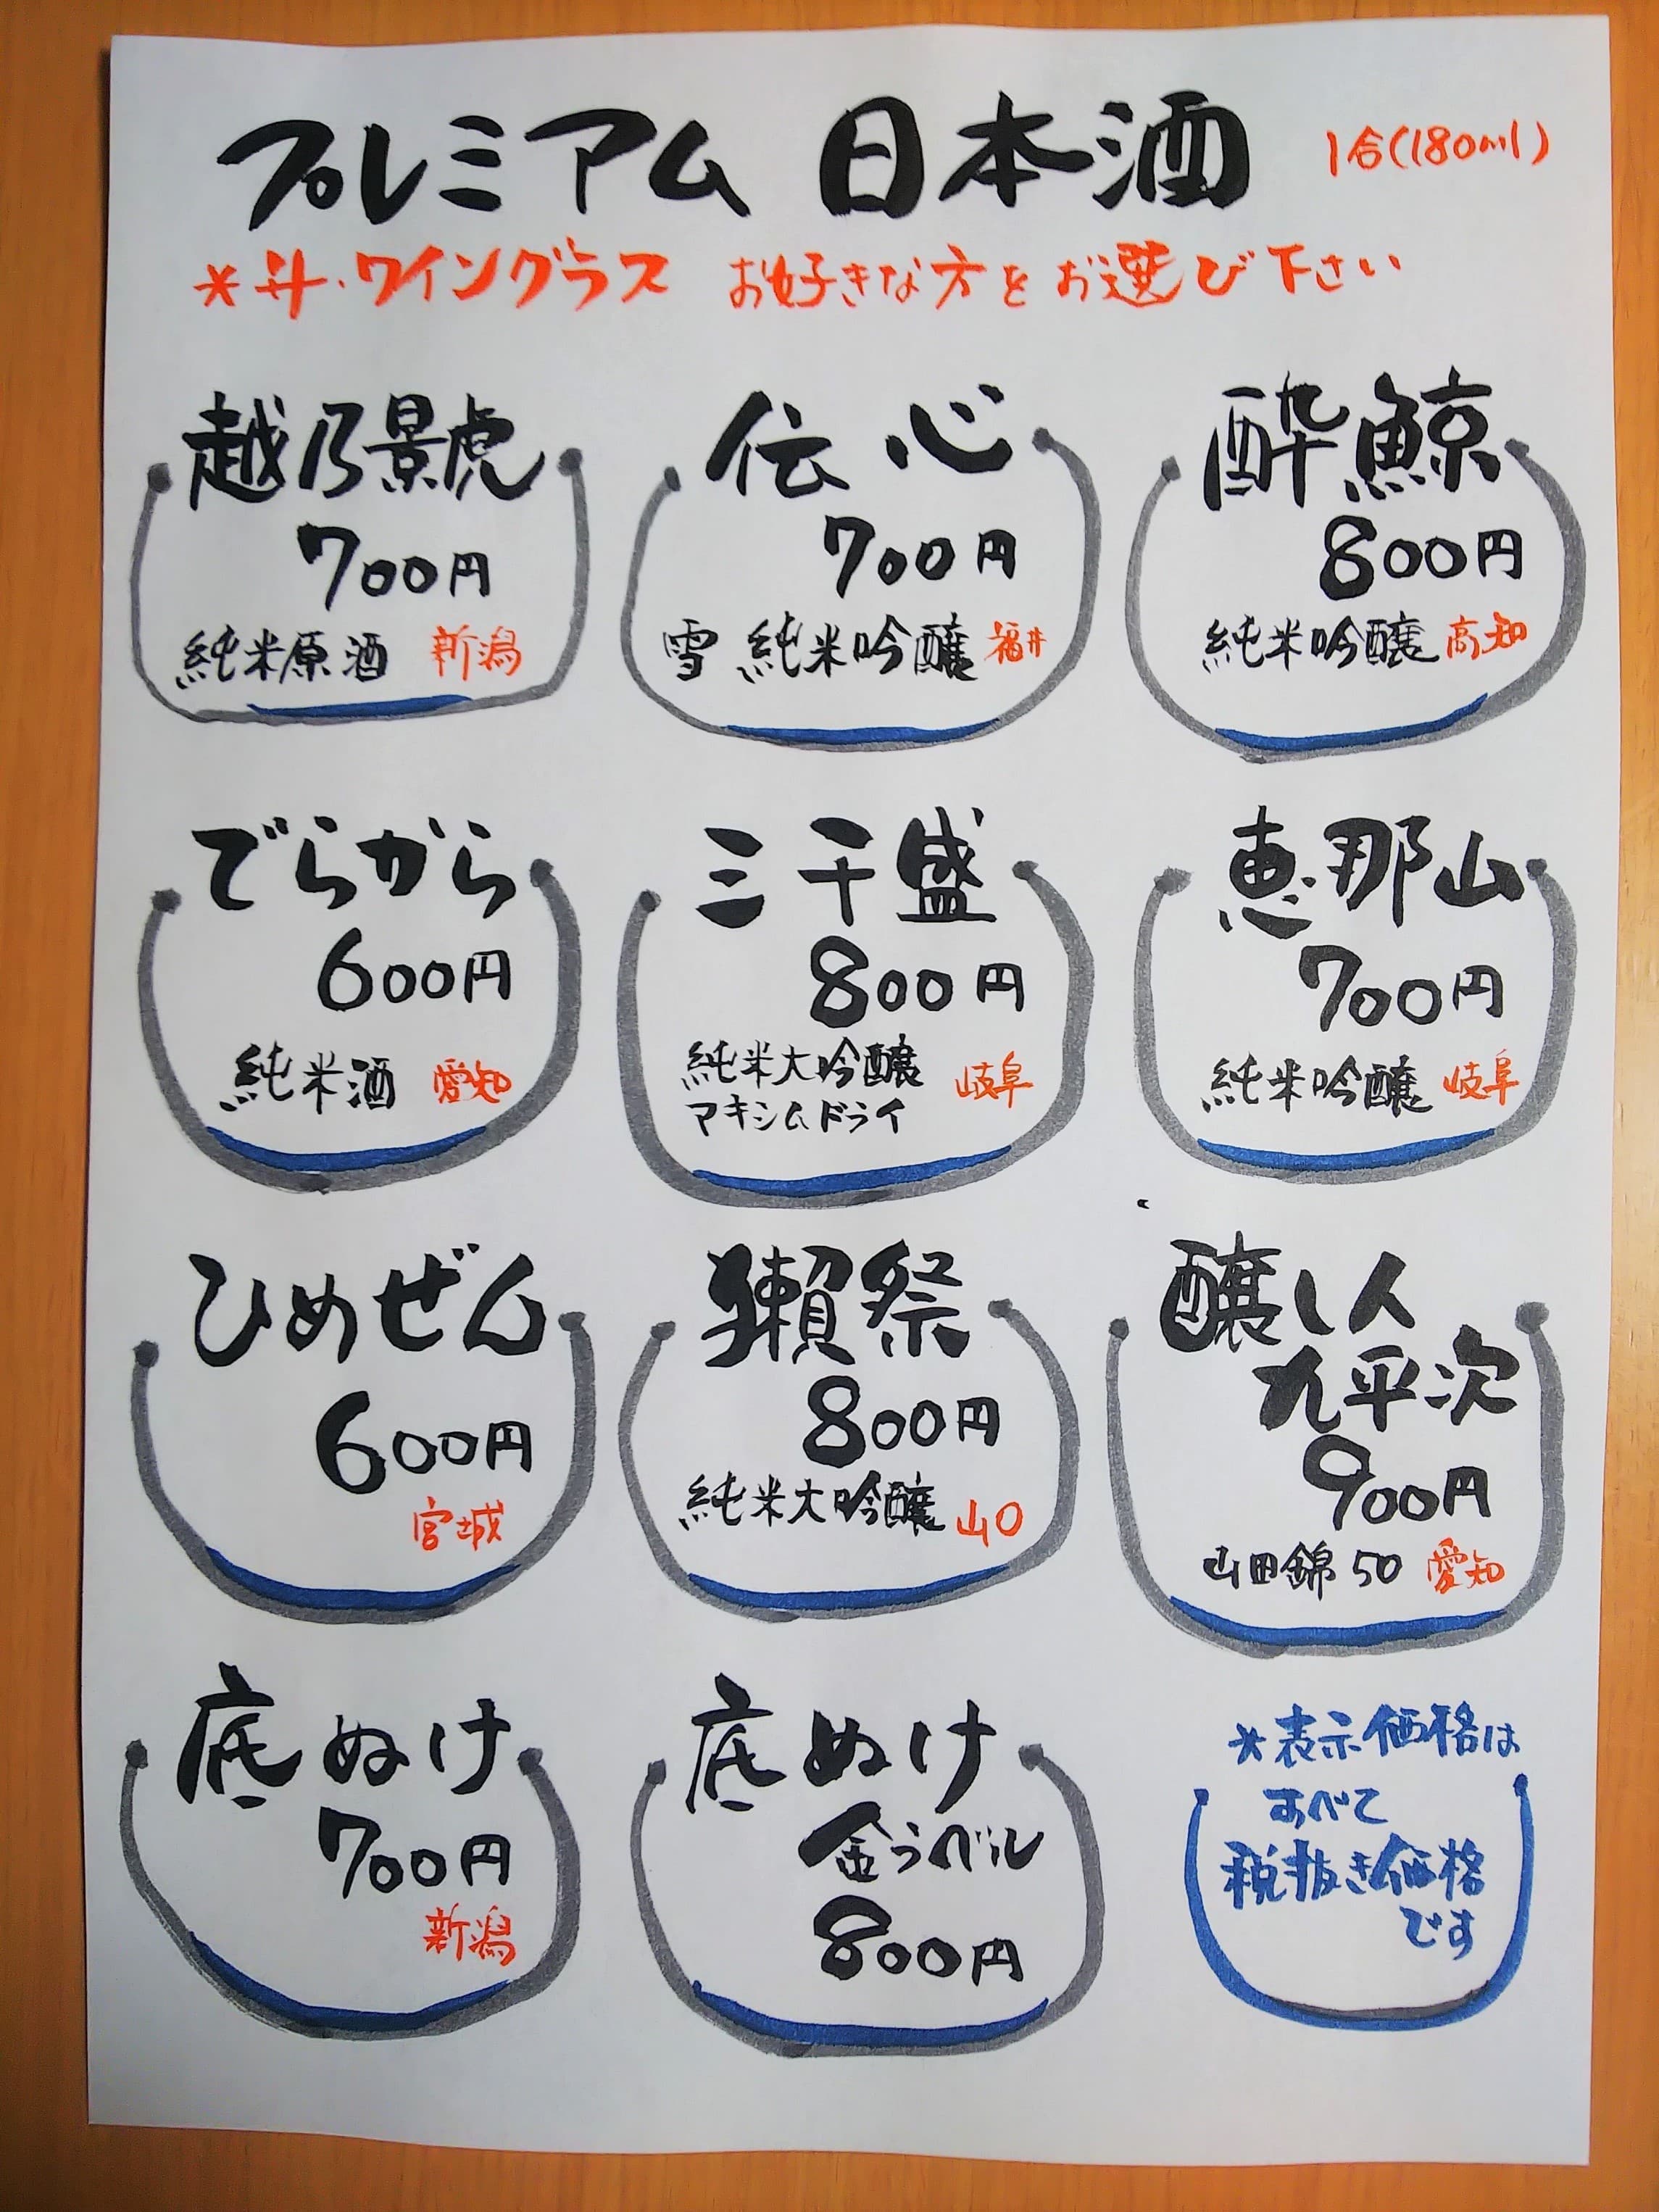 プレミアム 日本酒 1合(180ml)
*升・ワイングラス お好きな方をお選び下さい
越乃景虎
700円
純米原酒 新潟
伝心
700円
雪 純米吟醸 福井
酔鯨
800円
純米吟醸 高知
でらから
600円
純米酒 愛知
三千盛
800円
純米大吟醸 岐阜
マキシムドライ
恵那山
700円
純米吟醸 岐阜
ひめぜん
600円
宮城
獺祭
800円
純米大吟醸 山口
醸し人
九平次
900円
山田錦 50 愛知
底ぬけ
700円
新潟
底ぬけ
金ラベル
800円
*表示価格は
すべて
税抜き価格
です